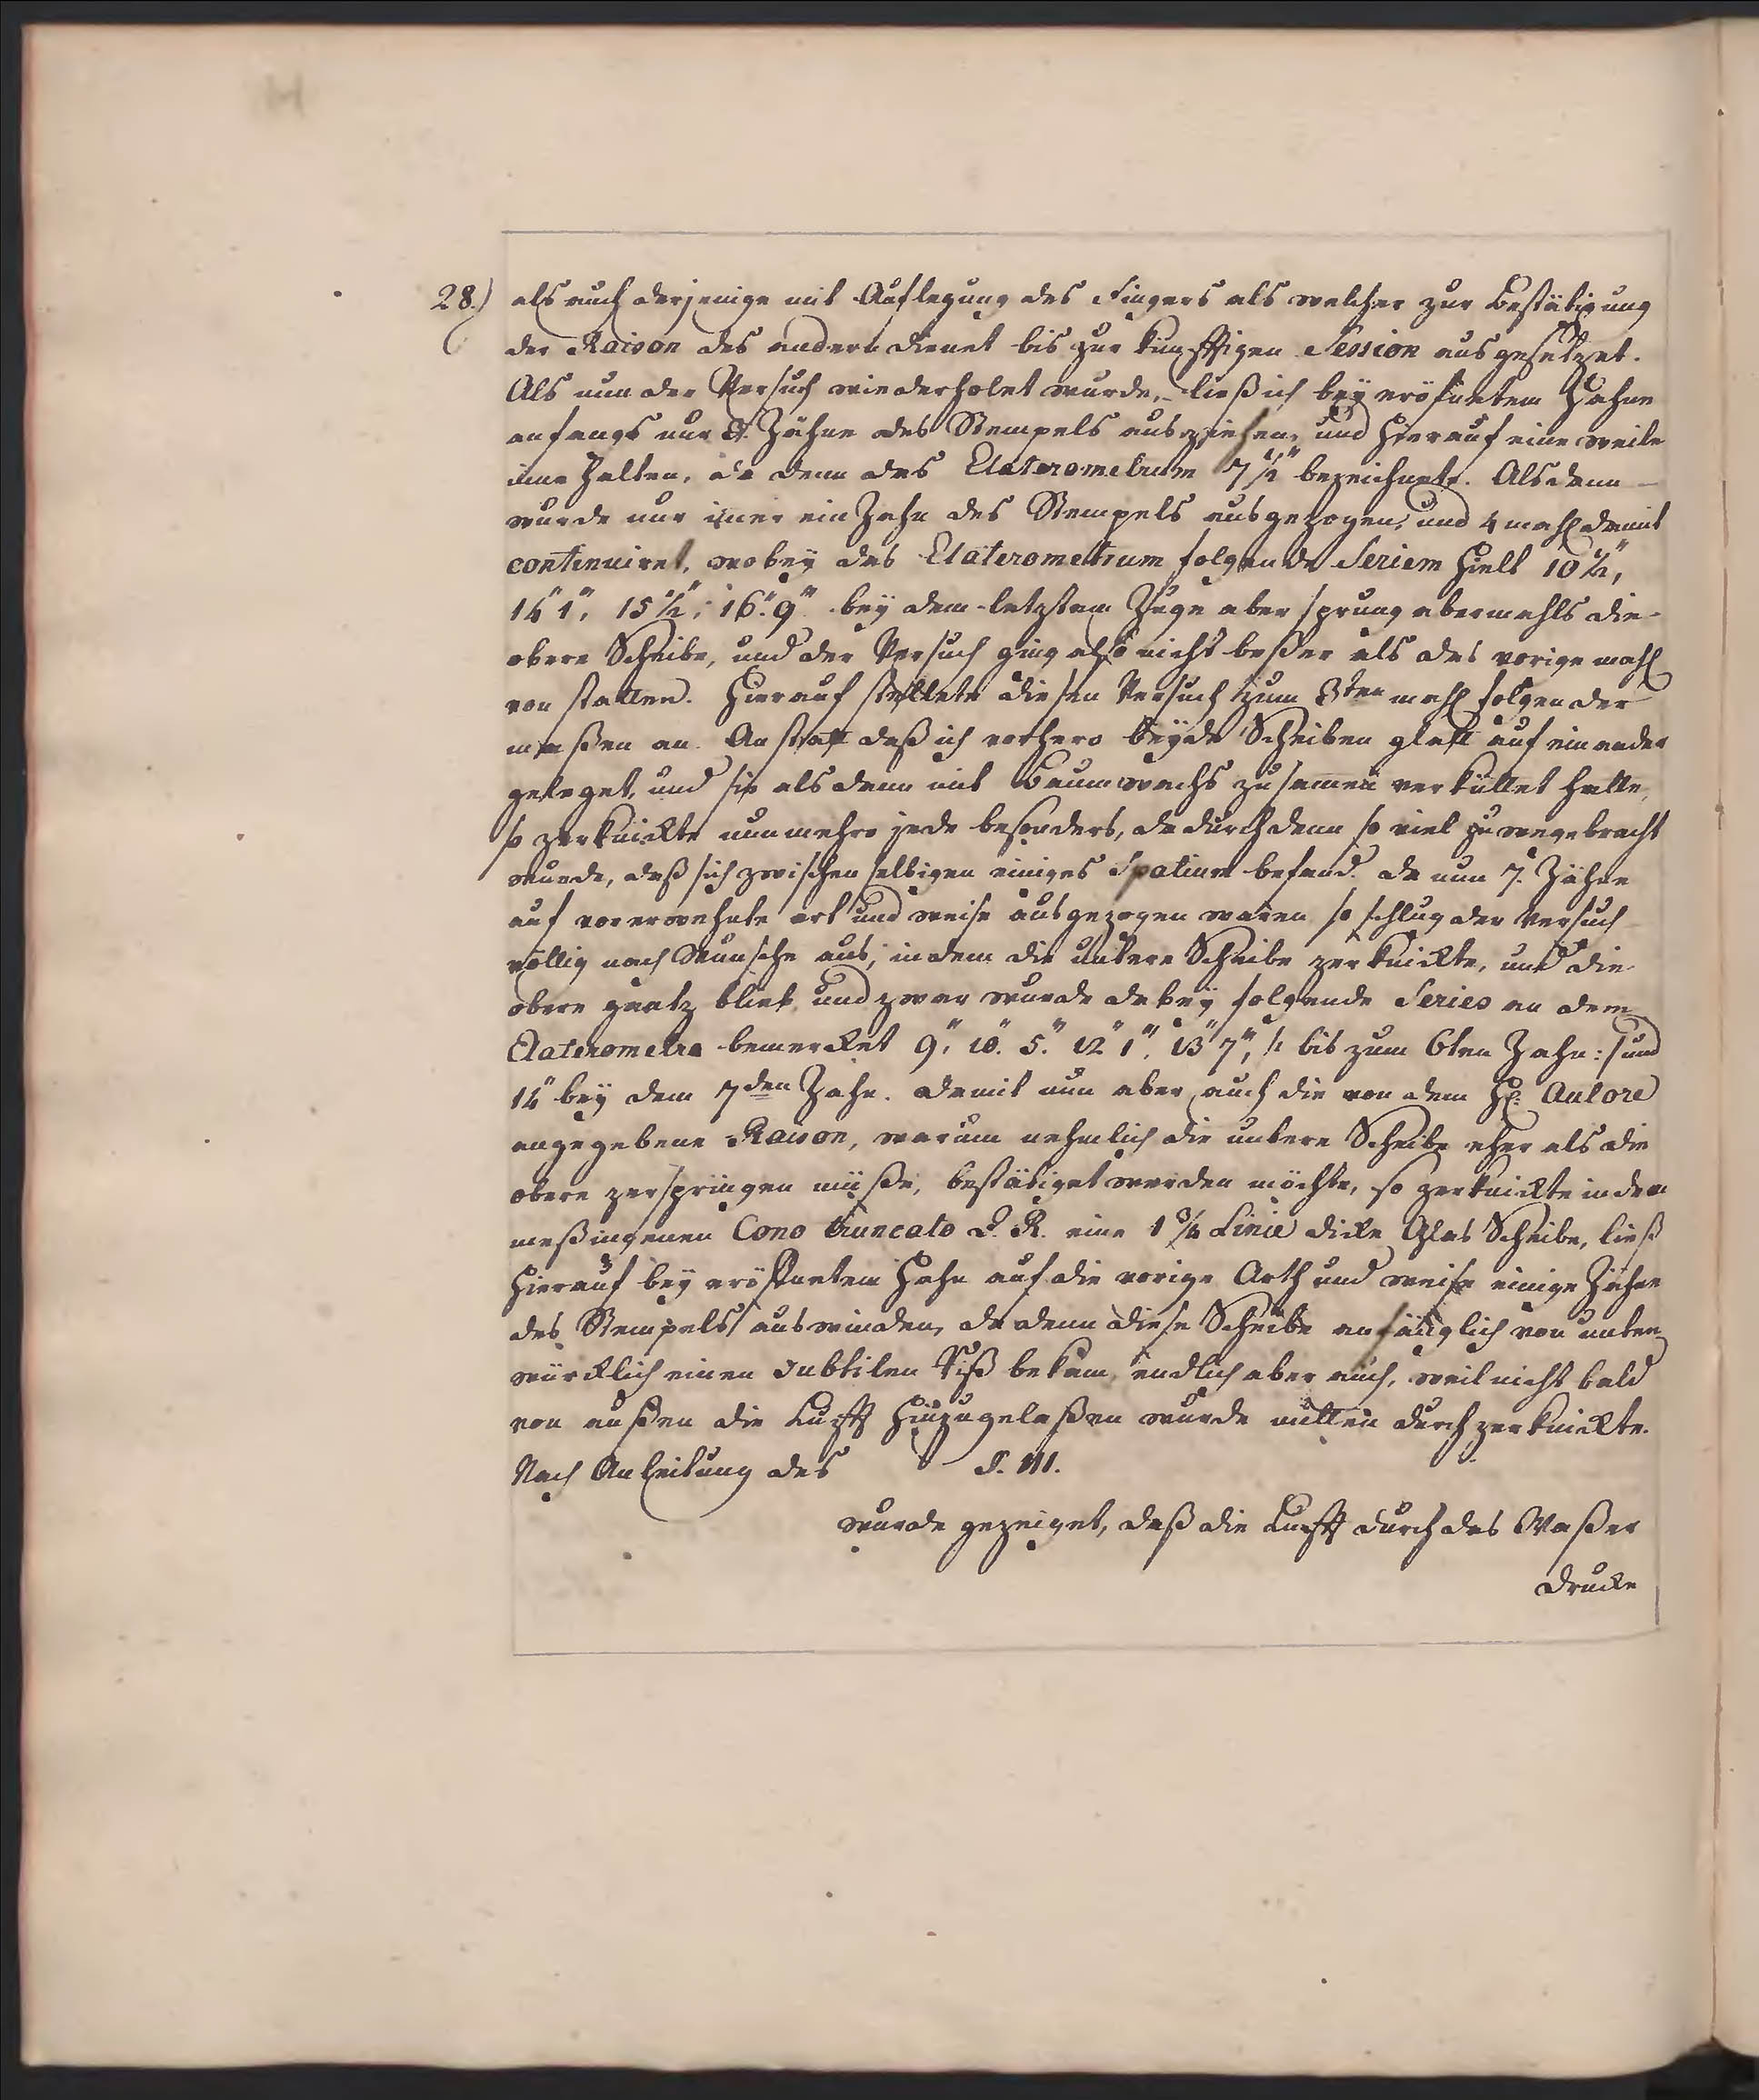 28.) als auch derjenige mit Auflegung des Fingers als welcher zur Bestätigung
der Raison des andern dienet bis zur künfftigen Session ausgesetzet.
Als nun der Versuch wiederholet wurde, ließ ich bey eröfnetem Hahne
anfangs nur Zähne des Stempels ausziehen, und hierauf eine weile
inne halten, da denn das Elaterometrum 7½" bezeichnete. Alsdenn
wurde nur im̅er ein Zahn des Stempels ausgezogen, und 4 mahl damit
continuiret, wobey das Elaterometrum folgende Seriem hielt 10½",
14" 1"', 15½", 16". 9"' bey dem letztem Zuge aber sprung abermahls die
obere Scheibe, und der Versuch ging also nicht beßer als das vorige mahl
von statten. Hierauf stellete diesen Versuch zum 3ten mahl folgender
maßen an. Anstatt daß ich vorhero beyde Scheiben glatt auf einander
geleget, und sie alsdenn mit Baumwachs zusam̅en verküttet hatte,
so verküttete nunmehro jede besonders, dadurch denn so viel zuwegebracht
wurde, daß sich zwischen selbigen einiges Spatium befand. da nun 7. Zähne
auf vorerwehnte art und weise ausgezogen waren so schlug der Versuch
völlig nach Wunsche aus, indem die untere Scheibe zerknickte, und die
obere gantz blieb, und zwar wurde dabey folgende Series an dem
Elaterometro bemercket 9", 10". 5"'. 12" 1"', 13" 7"', /: bis zum 6ten Zahn :/ und
14" bey dem 7den Zahn. damit nun aber auch die von dem H: Autore
angegebene Raison, warum nehmlich die untere Scheibe eher als die
obere zerspringen müße, bestätiget werden möchte, so verküttete in dem
meßingenen Cono truncato Q. R. eine 1¾ Linie dicke Glas Scheibe, ließ
hierauf bey eröfnetem Hahn auf die vorige Arth und weise einige Zähne
des Stempels auswinden, da denn diese Scheibe anfänglich von unten
würcklich einen subtilen Riß bekam, endlich aber auch, weil nicht bald
von außen die Lufft hinzugelaßen wurde mitten durch zerknickte.
Nach Anleitung des §. 111.
wurde gezeiget, daß die Lufft durch das Waßer
drucke